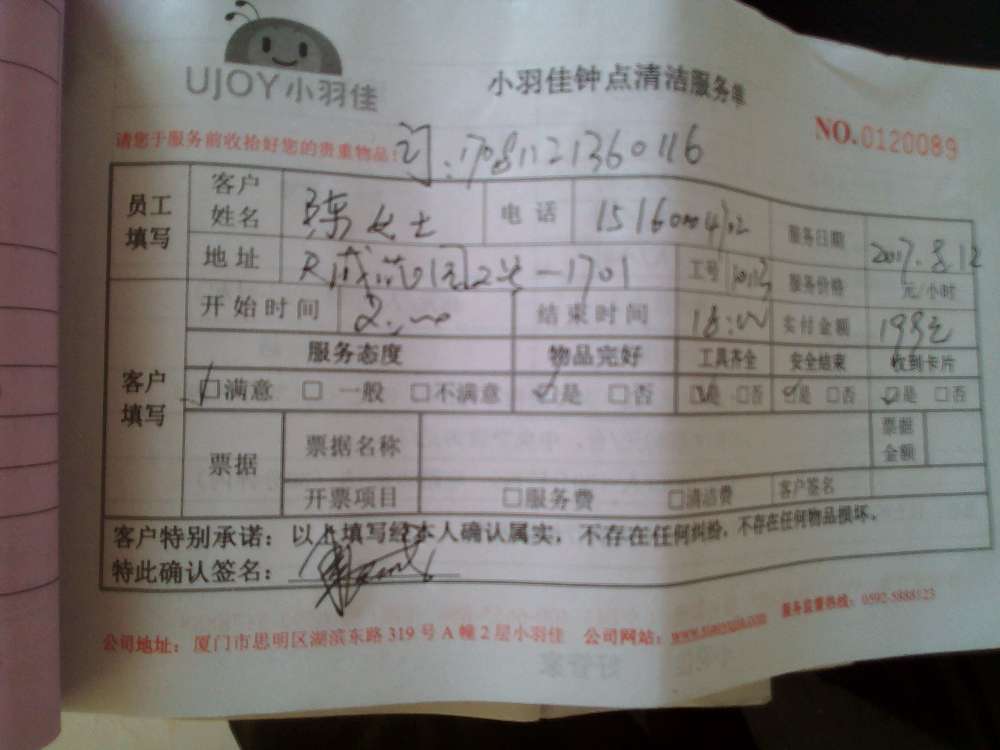 UJOY小羽佳
小羽佳钟点清洁服务单
NO.0120089
请您于服务前收拾好您的贵重物品:
订:17081121360116
员工填写
客户姓名 陈女士 电话 服务日期 2017.8.12
地址 工号 服务价格 元/小时
客户填写
开始时间 结束时间 18:00 实付金额 199元
服务态度 物品完好 工具齐全 安全结束 收到卡片
□满意 □一般 □不满意 □是 □否 □是 □否 □是 □否 □是 □否
票据 票据名称 票据金额
开票项目 □服务费 □清洁费 客户签名
客户特别承诺:以上填写经本人确认属实,不存在任何纠纷,不存在任何物品损坏。
特此确认签名:
公司地址:厦门市思明区湖滨东路319号A幢2层小羽佳 公司网站: 服务监督热线:0592-5888123